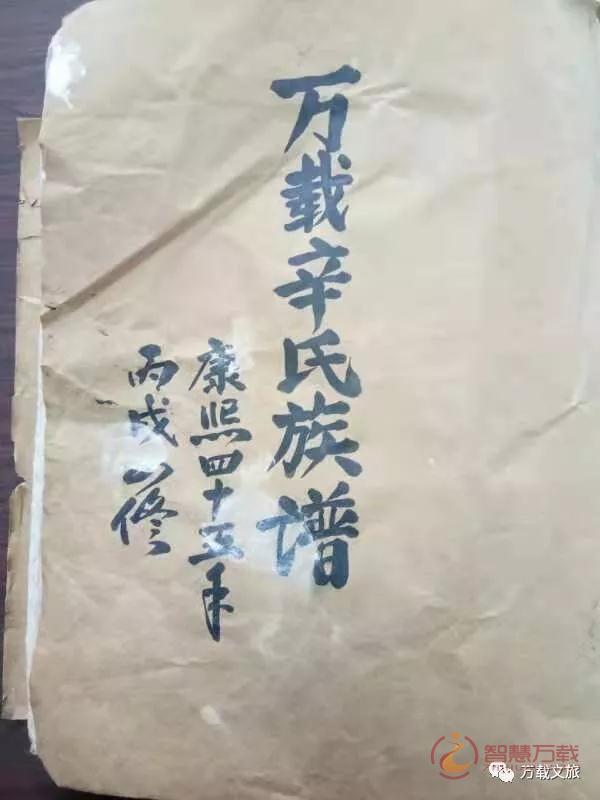 万载辛氏族谱
康熙四十五年
丙戌修
智慧万载
万载文旅